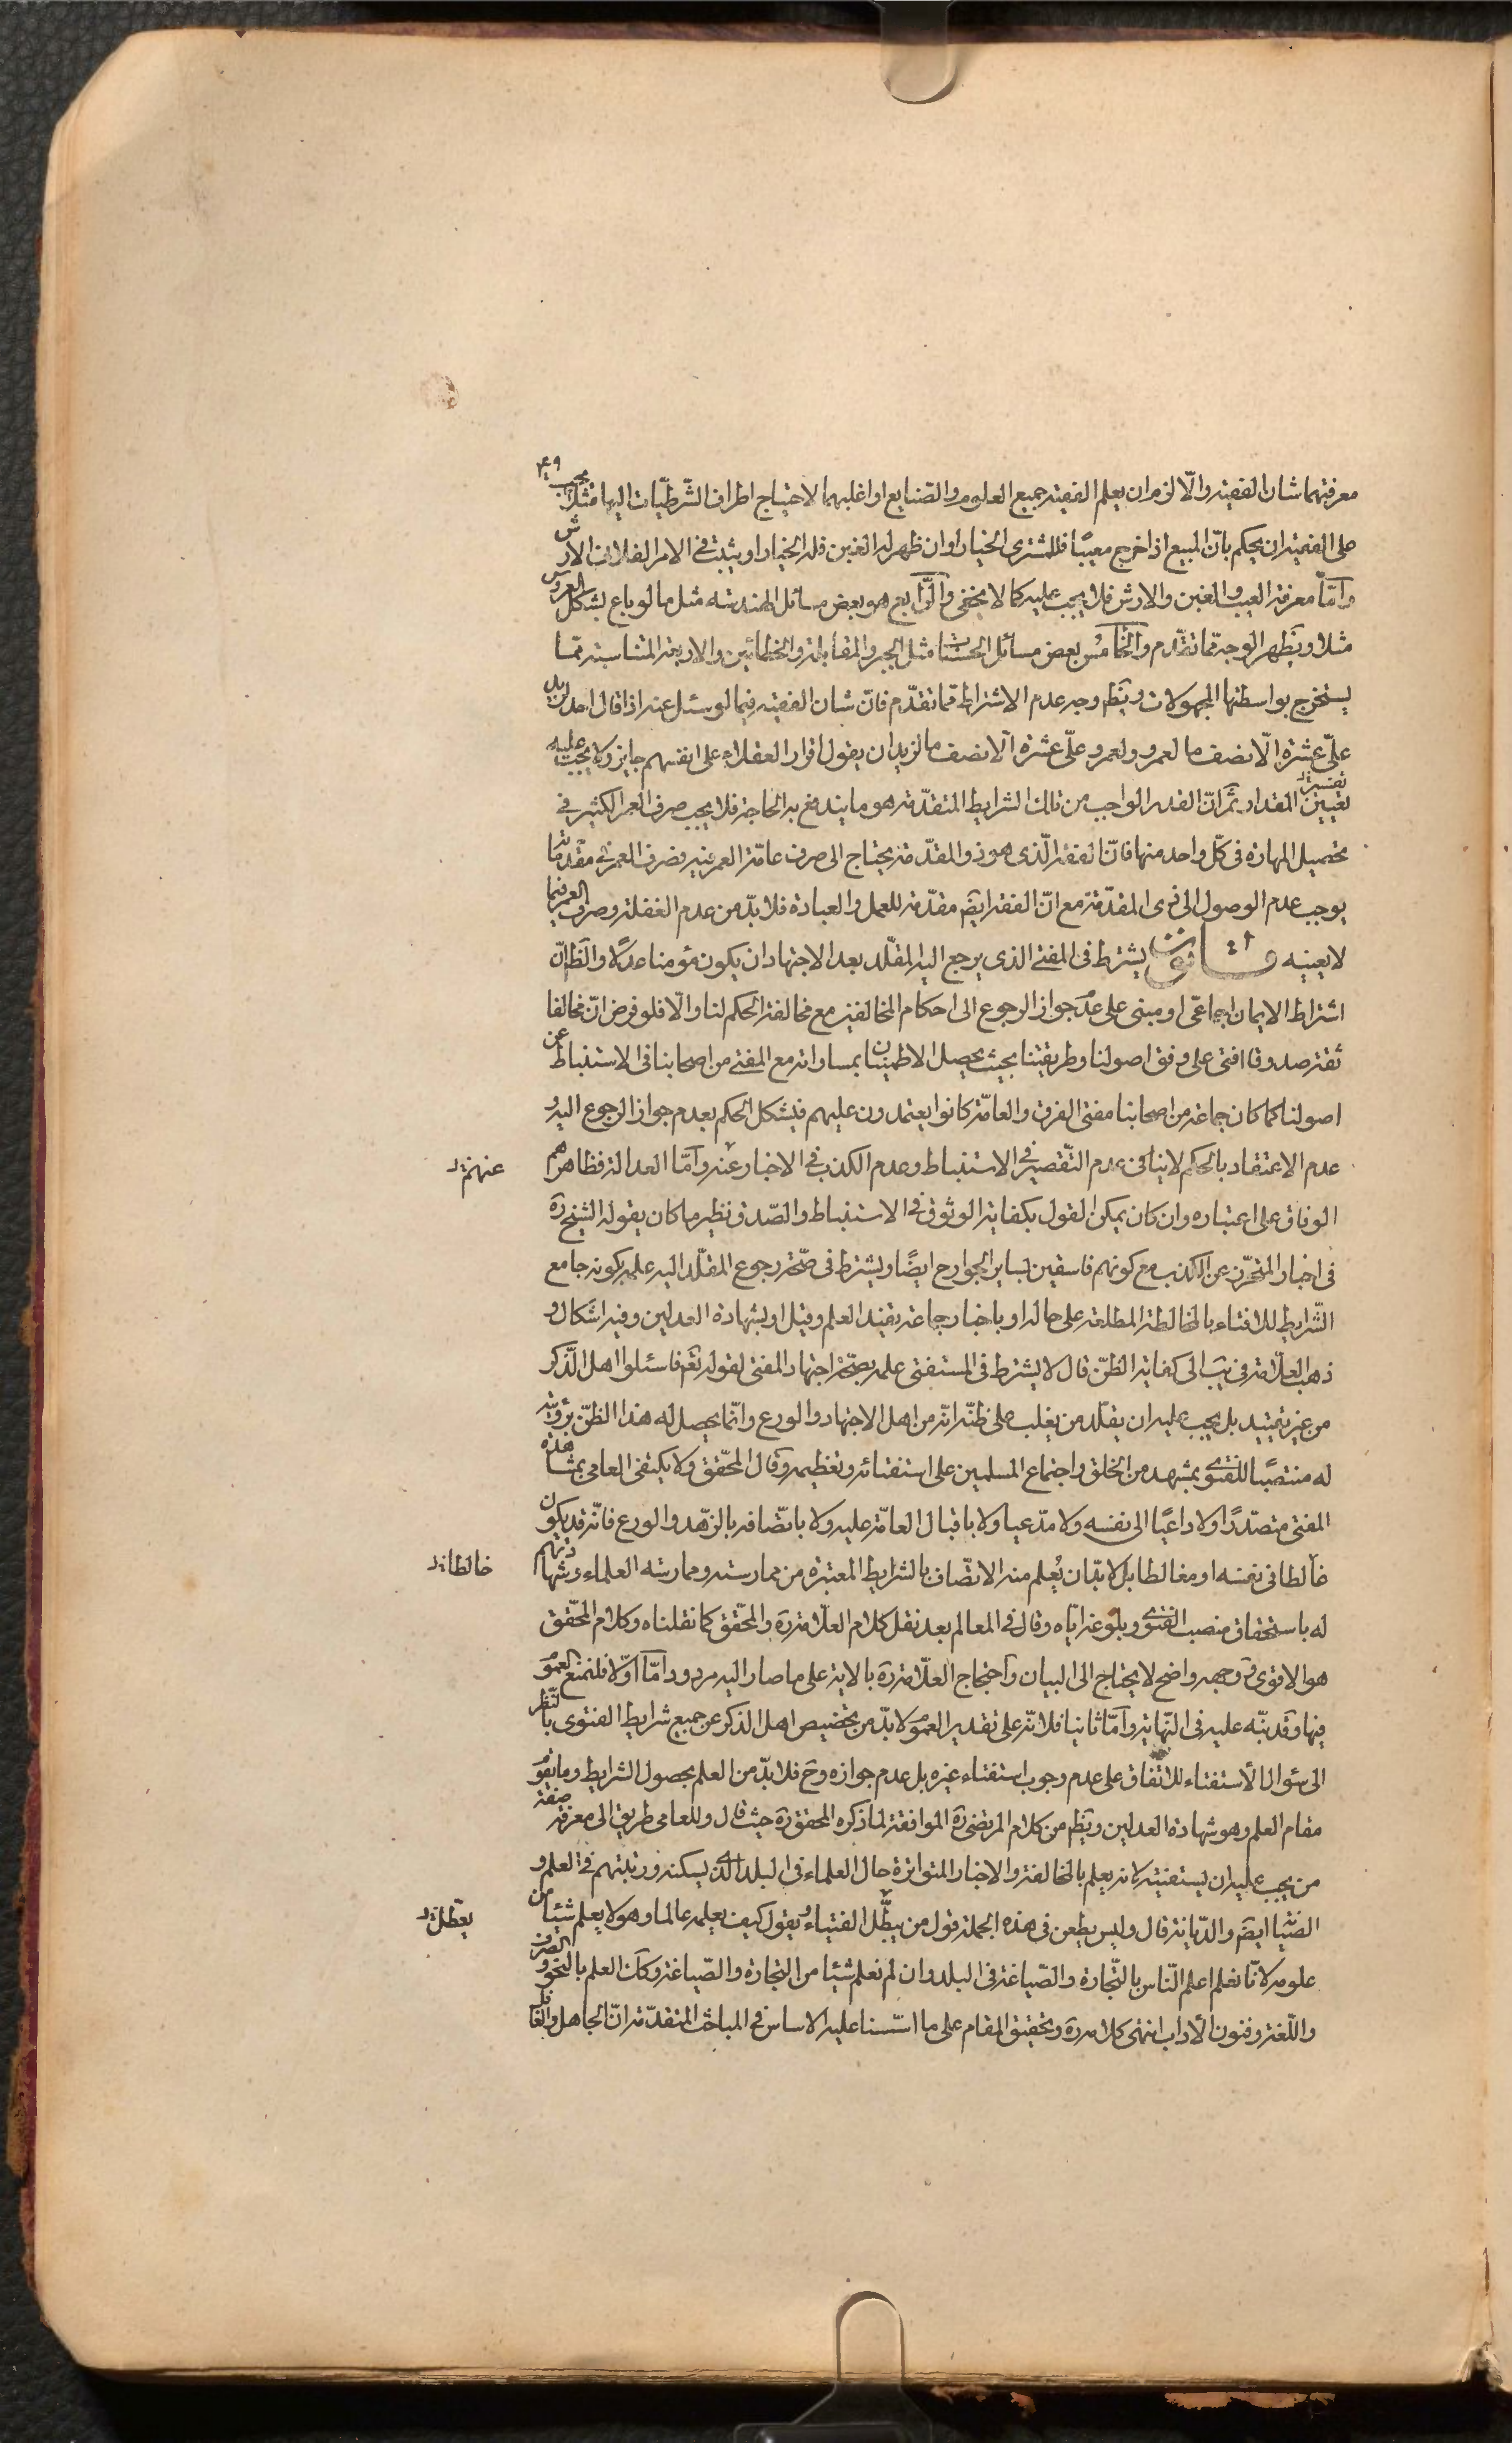 ۴۹
معرفتهما شان الفقيه والّا لزم ان يعلم الفقيه جميع العلوم والصنايع او اغلبهما لاحتياج اطراف الشّرطيّات اليها مثلا يجب
على الفقيه ان يحكم بانّ المبيع اذا خرج معيبًا فللمشترى الخيار او ان ظهر له الغبن فله الخيار او يثبت فى الامر الفلانى الارش
وامّا معرفة العيب والغبن والارش فلا يجب عليه كما لا يخفى والرّابع هو بعض مسائل الهندسه مثل ما لو باع بشكل العروس
مثلا ويظهر الوجه ممّا تقدّم والخامس بعض مسائل الحساب مثل الجبر والمقابلة والخطائين والاربعة المتناسبة ممّا
يستخرج بواسطتها المجهولات ويظهر وجه عدم الاشتراط ممّا تقدّم فانّ شان الفقيه فيما لو سئل عنه اذا قال احد لزيد
علىّ عشرة الّا نصف ما لعمرو ولعمرو علىّ عشرة الّا نصف ما لزيد ان يقول اقرار العقلاء على انفسهم جايز ولا يجب عليه
تعيين تفسير المقداد ثمّ انّ القدر الواجب من تلك الشرايط المتقدّمة هو ما يندفع به الحاجة فلا يجب صرف العمر الكثير فى
تحصيل المهارة فى كلّ واحد منها فانّ الفقه الّذى هو ذو المقدّمة يحتاج الى صرف عامّة العمر فيه فصرف العمر فى مقدّماته
يوجب عدم الوصول الى ذى المقدّمة مع انّ الفقه ايضًا مقدّمة للعمل والعبادة فلا بدّ من عدم الغفلة وصرف العمر فيما
لا يعنيه قانون يشترط فى المفتى الذى يرجع اليه المقلّد بعد الاجتهاد ان يكون مؤمنا عدلًا والظّ انّ
اشتراط الايمان اجماعّى او مبنى على عدم جواز الرجوع الى احكام المخالفين مع مخالفة الحكم لنا والّا فلو فرض انّ مخالفا
ثقة صدوقا افتى على وفق اصولنا وطريقتنا بحيث يحصل الاطمينان بمساواته مع المفتى من اصحابنا فى الاستنباط عن
اصولنا كما كان جماعة من اصحابنا مفتى الفرق والعامّة كانوا يعتمدون عليهم فيشكل الحكم بعدم جواز الرجوع اليه و
عدم الاعتقاد بالحكم لا ينافى عدم التّقصير فى الاستنباط وعدم الكذب فى الاخبار عنه وامّا العدالة فظاهرهم
عنهم
الوفاق على اعتباره وان كان يمكن القول بكفاية الوثوق فى الاستنباط والصّدق نظير ما كان يقوله الشيخ ره
فى اخبار المتحرّز عن الكذب مع كونهم فاسقين بساير الجوارح ايضًا ويشترط فى صحّة رجوع المقلّد اليه علمه بكونه جامع
الشّرايط للافتاء بالمخالطة المطلعة على حاله او باخبار جماعة يفيد العلم وقيل او بشهادة العدلين وفيه اشكال و
ذهب العلّامة فى يب الى كفاية الظنّ قال لا يشترط فى المستفتى علمه بصحّة اجتهاد المفتى لقوله تعَ فاسئلوا اهل الذّكر
من غير تقييد بل يجب عليه ان يقلّد من يغلب على ظنّه انّه من اهل الاجتهاد والورع وانّما يحصل له هذا الظنّ برؤيته
له منتصبًا للفتوى بمشهد من الخلق واجتماع المسلمين على استفتائه وتعظيمه وقال المحقّق ولا يكتفى العامى بمشاهدة
المفتى متصدّرًا ولا داعيًا الى نفسه ولا مدّعيا ولا باقبال العامّة عليه ولا باتّصافه بالزّهد والورع فانّه قد يكون
غالطا فى نفسه او مغالطا بل لا بدّ ان يُعلم منه الاتّصاف بالشرايط المعتبرة من ممارسته وممارسة العلماء وشهادتهم
خالطا
له باستحقاق منصب الفتوى وبلوغه ايّاه وقال فى المعالم بعد نقل كلام العلّامة ره والمحقّق كما نقلناه وكلام المحقّق
هو الاقوى ووجهه واضح لا يحتاج الى البيان واحتجاج العلّامة ره بالاية على ما صار اليه مردود امّا اوّلا فلمنع العموم
فيها وقد نبّه عليه فى النّهاية وامّا ثانيا فلانّه على تقدير العموم لا بدّ من تخصيص اهل الذكر عن جميع شرايط الفتوى بالنّظر
الى سئوال الاستفتاء للاتّفاق على عدم وجوب استفتاء غيره بل عدم جوازه وح فلا بدّ من العلم بحصول الشرايط وما يقوم
مقام العلم وهو شهادة العدلين ويظهر من كلام المرتضى ره الموافقة لما ذكره المحقق ره حيث قال وللعامى طريق الى معرفة صفة
من يجب عليه ان يستفتيه لانه يعلم بالمخالفة والاخبار المتواترة حال العلماء فى البلد الّذى يسكنه ورتبتهم فى العلم و
الصّيانة ايضًا والدّيانة قال وليس يطعن فى هذه الجملة قول من يبطّل الفتياء ويقول كيف يعلمه عالما وهو لا يعلم شيئا من
يعطّل
علومه لانّا نعلم اعلم النّاس بالتّجارة والصّياغة فى البلد وان لم نعلم شيئا من التجارة والصّياغة وكذا العلم بالنحو والصرف
واللّغة وفنون الاداب انتهى كلامه ره وتحقيق المقام على ما اسّسنا عليه الاساس فى المباحث المتقدّمة انّ الجاهل والغافل